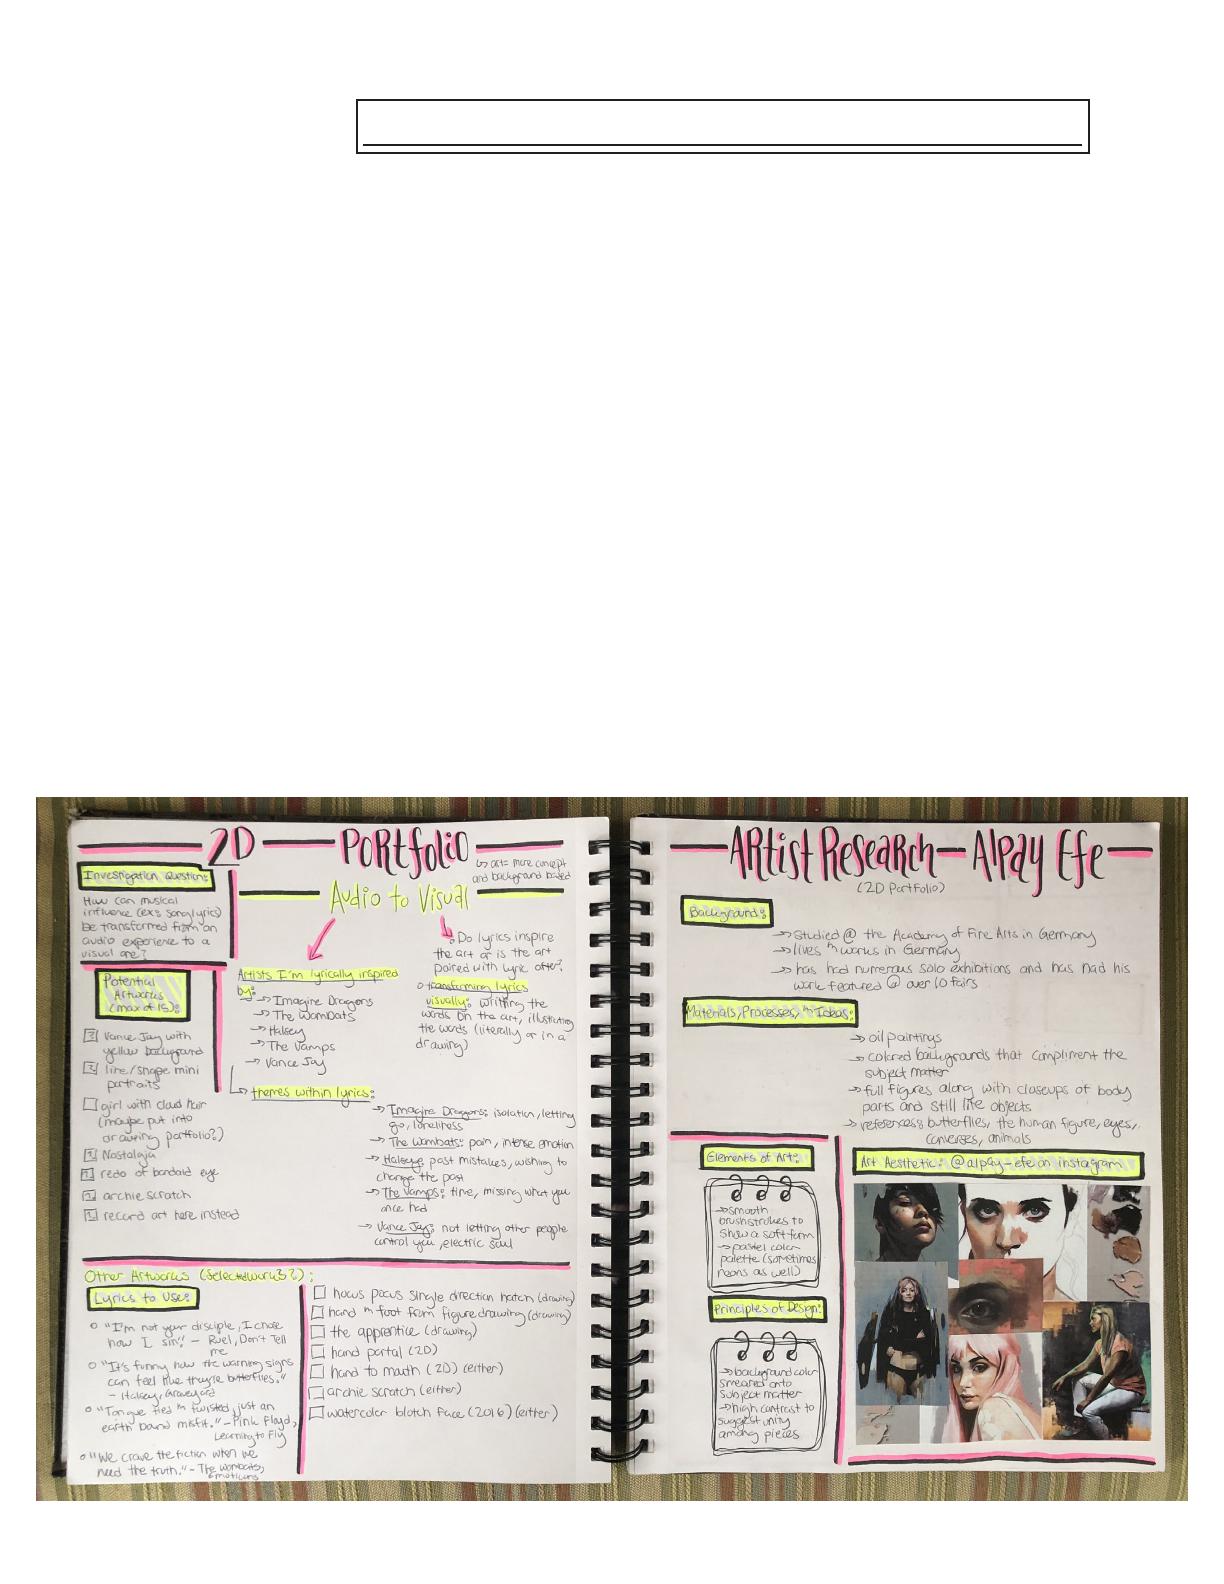 2D PORtfolio
↳ art= more concept
and background based
Audio to Visual
Investigation Question:
How can musical
influence (ex: song lyrics)
be transformed from an
audio experience to a
visual one?
Potential
Artworks
(max of 15):
Vance Jay with
yellow background
line/shape mini
portraits
girl with cloud hair
(maybe put into
drawing portfolio?)
Nostalgia
redo of bandaid eye
archie scratch
record art here instead
Artists I'm lyrically inspired
by:
→ Imagine Dragons
→ The Wombats
→ Halsey
→ The Vamps
→ Vance Jay
Do lyrics inspire
the art or is the art
paired with lyric after?
transforming lyrics
visually: writing the
words on the art, illustrating
the words (literally or in a
drawing)
↳ themes within lyrics:
→ Imagine Dragons: isolation, letting
go, loneliness
→ The Wombats: pain, intense emotion
→ Halsey: past mistakes, wishing to
change the past
→ The Vamps: time, missing what you
once had
→ Vance Jay: not letting other people
control you, electric soul
Other Artworks (Selected Works?):
Lyrics to Use:
"I'm not your disciple, I chose
how I sin" - Ruel, Don't Tell
me
"It's funny how the warning signs
can feel like they're butterflies."
- Halsey, Graveyard
"Tongue tied n twisted, just an
earth bound misfit." - Pink Floyd,
Learning to Fly
"We crave the fiction when we
need the truth." - The Wombats,
emoticons
hocus pocus single direction hatch (drawing)
hand n foot from figure drawing (drawing)
the apprentice (drawing)
hand portal (2D)
hand to mouth (2D) (either)
archie scratch (either)
watercolor blotch face (2016) (either)
ARtist ReseaRch - Alpay Efe
(2D Portfolio)
Background:
→ studied @ the Academy of Fine Arts in Germany
→ lives n works in Germany
→ has had numerous solo exhibitions and has had his
work featured @ over 10 fairs
Materials, Processes, n Ideas:
→ oil paintings
→ colored backgrounds that compliment the
subject matter
→ full figures along with closeups of body
parts and still life objects
→ references: butterflies, the human figure, eyes,
converses, animals
Elements of Art:
→ smooth
brushstrokes to
show a soft form
→ pastel color
palette (sometimes
neons as well)
Principles of Design:
→ background color
smeared onto
subject matter
→ high contrast to
suggest unity
among pieces
Art Aesthetic: @alpay-efe on instagram